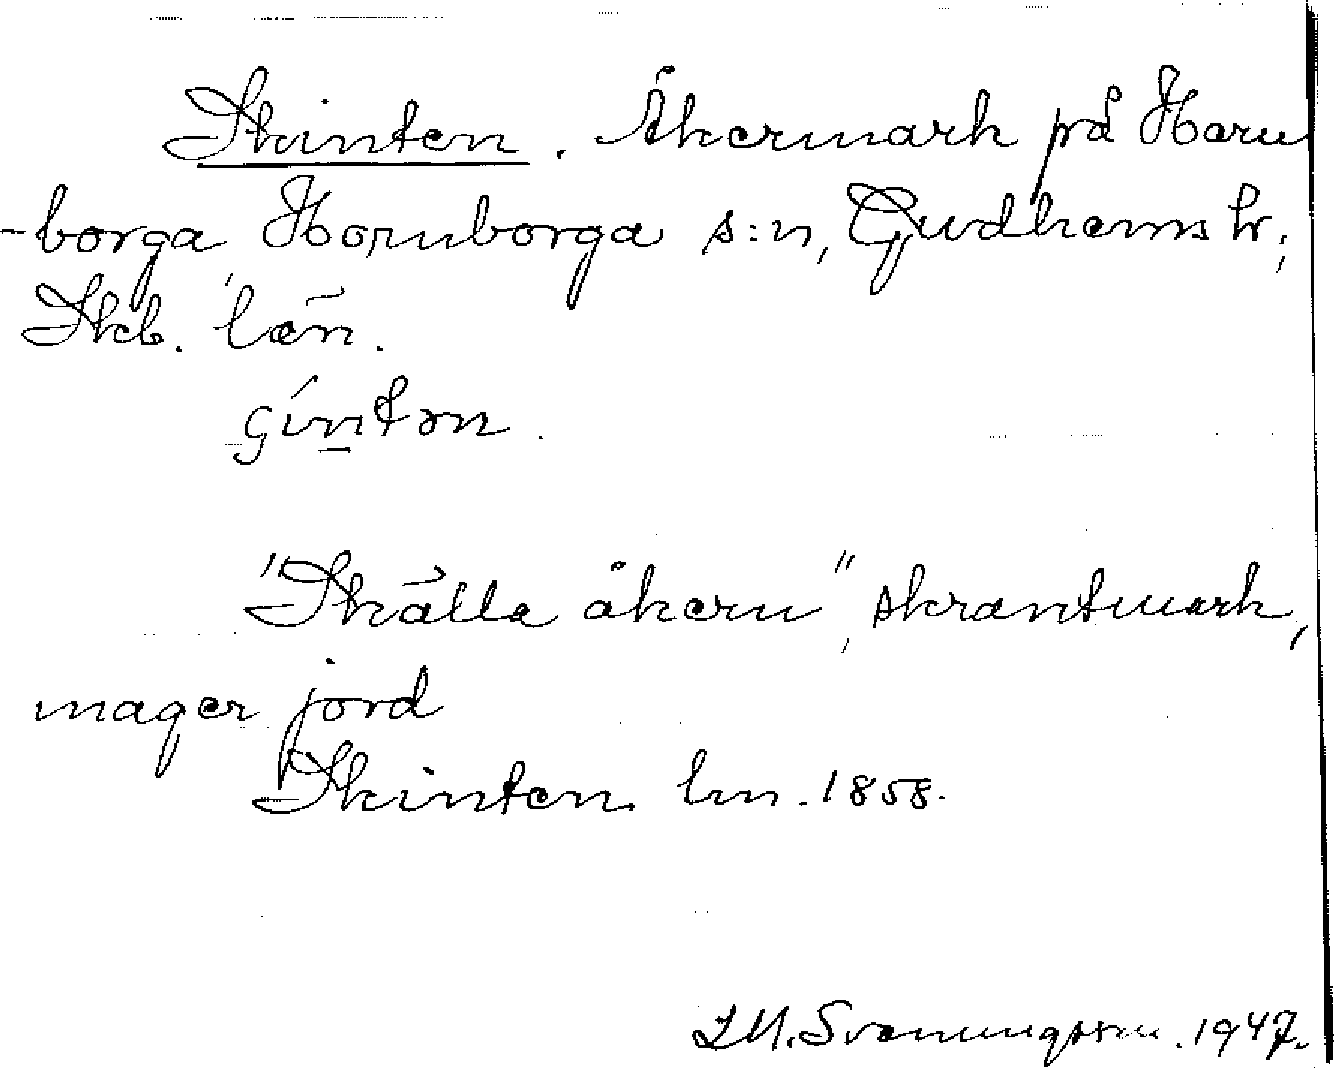 Skinten. Åkermark på Horn
-borga, Hornborga s:n, Gudhems hr,
Skb. län.
"Skálla åkern", skrantmark,
mager jord
Skinten lm. 1858.
Svenungsson. 1947.